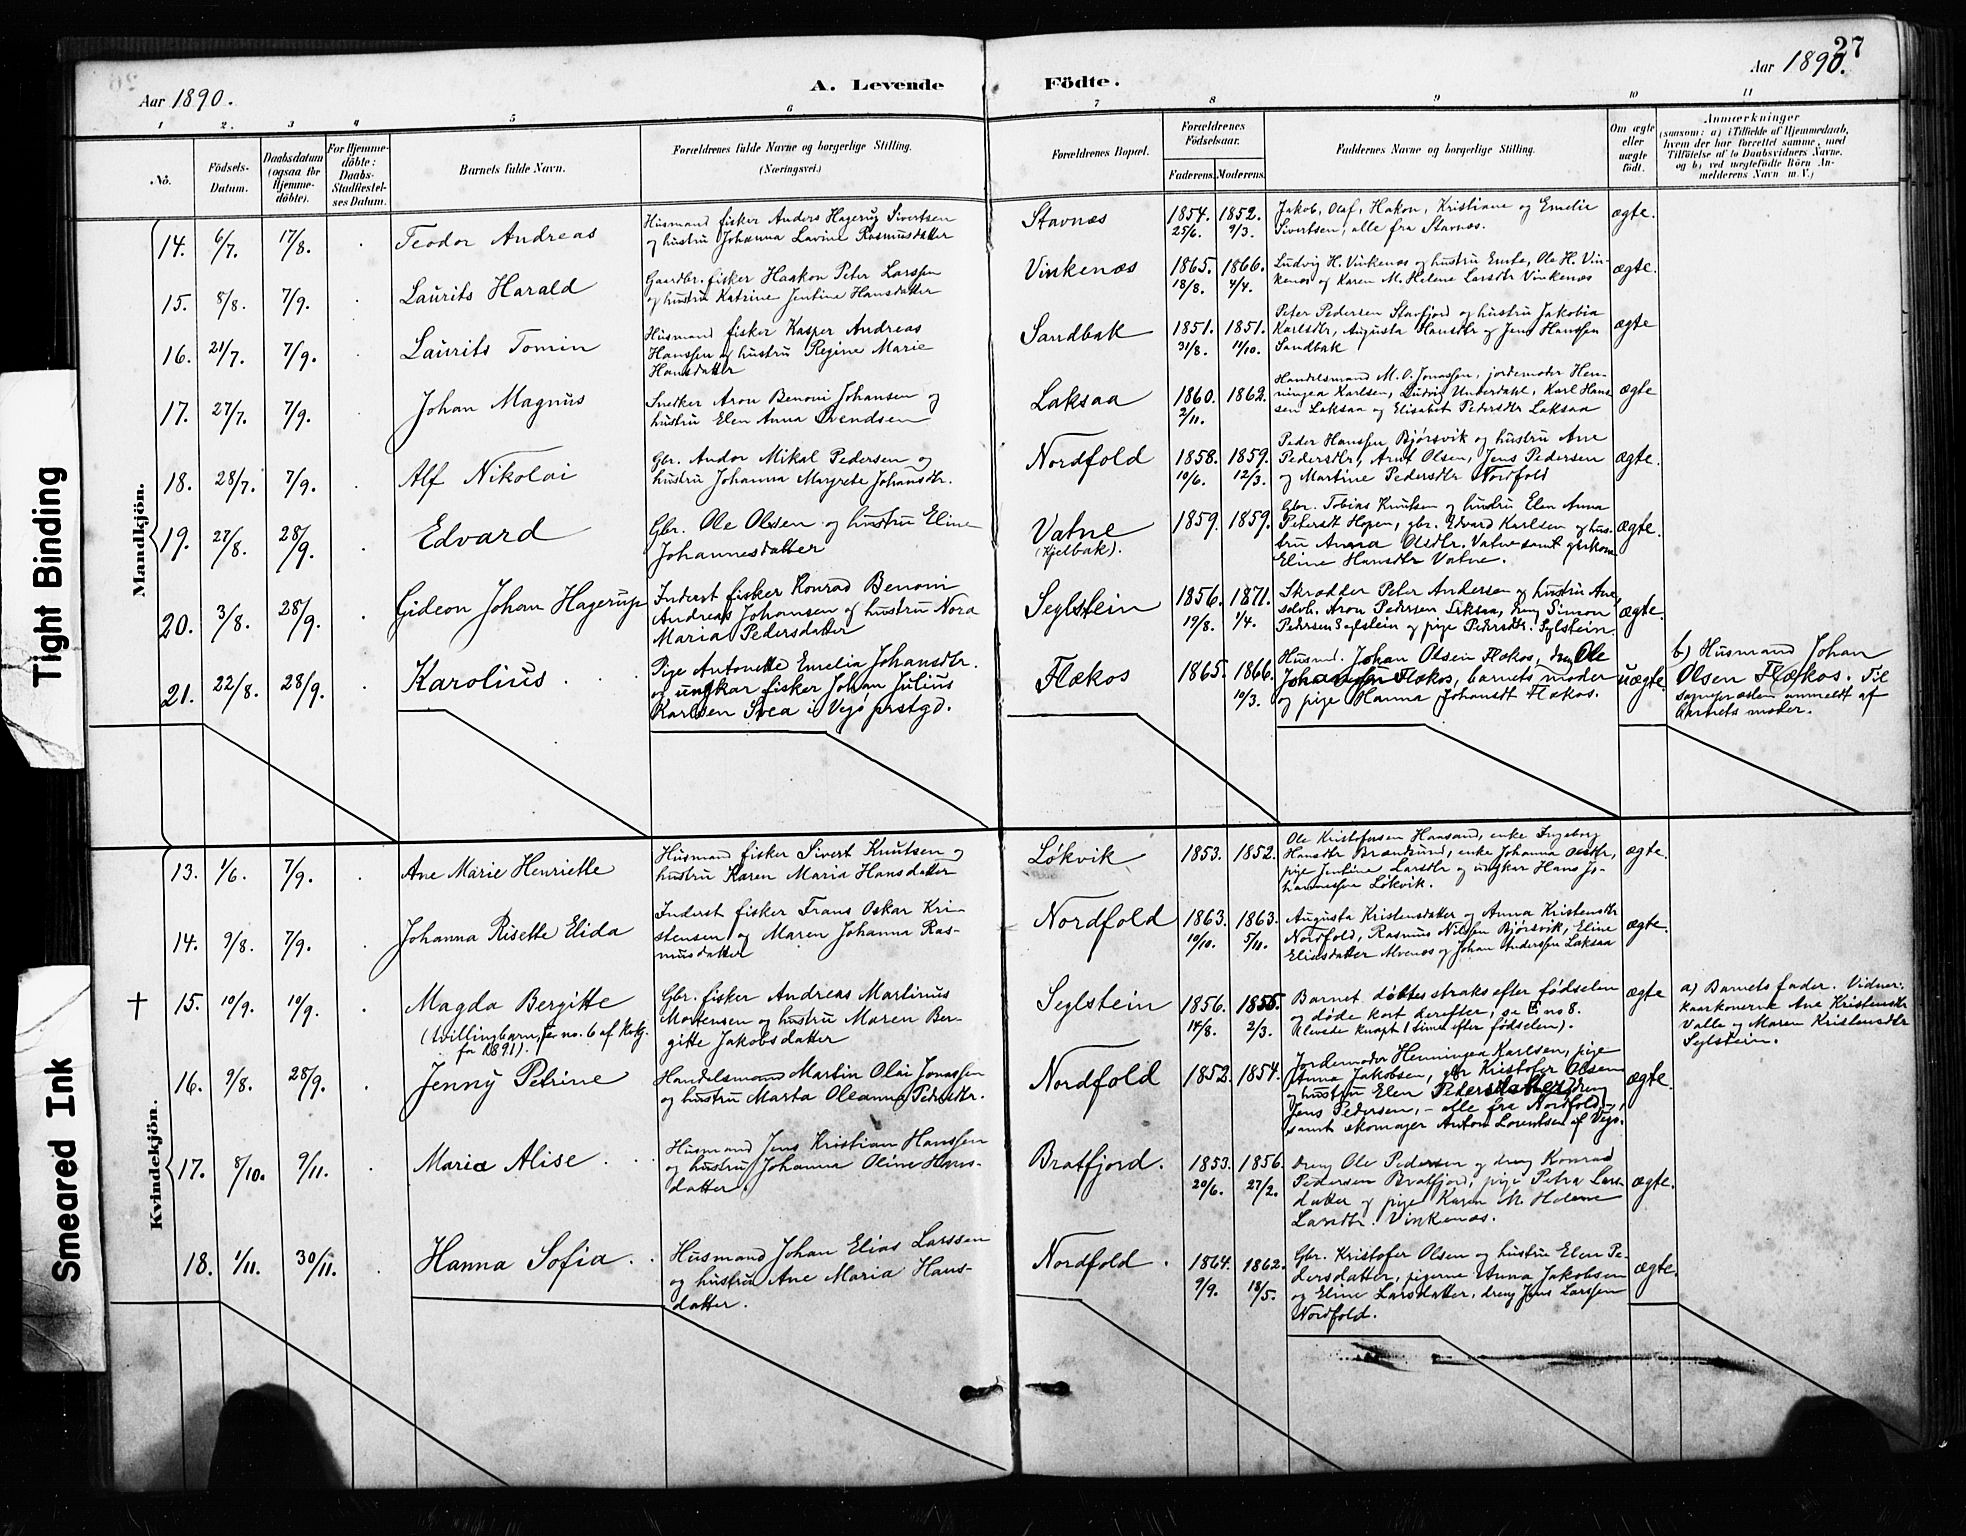 27
Aar 1890.
A. Levende Födte.
Aar 1890.
1 2. 3 4 5 6 7 8 9 10 11
No.
Födsels-Datum.
Daabsdatum (ogsaa for Hjemme-döbte).
For Hjemme-döbte: Daabs-Stadfæstel-ses Datum.
Barnets fulde Navn.
Forældrenes fulde Navne og borgerlige Stilling.
(Næringsvei.)
Forældrenes Bopæl.
Forældrenes Födselsaar.
Faderens. Moderens.
Faddernes Navne og borgerlige Stilling.
Om ægte eller uægte födt.
Anmærkninger
(saasom: a) i Tilfælde af Hjemmedaab,
hvem der har forrettet samme, med
Tilföielse af to Daabsvidners Navne.
og b) ved uægtefödte Börn An-
melderens Navn m. V.)
Mandkjön.
14. 6/7. 17/8. Teodor Andreas
Husmand fisker Anders Hagerup Sivertsen
og hustru Johanna Lavine Rasmusdatter
Stavnæs 1854. 25/6. 1852. 9/3.
Jakob, Olaf, Hakon, Kristiane og Emelie
Sivertsen, alle fra Stavnæs.
ægte.
15. 8/8. 7/9. Laurits Harald
Gaardbr. fisker Haakon Peter Larssen
og hustru Katrine Jentine Hansdatter
Vinkenæs 1865. 18/8. 1866. 4/4.
Ludvig H. Vinkenæs og hustru Ente, Ole H. Vin-
kenæs og Karen M. Helene Larsdtr Vinkenæs
ægte.
16. 21/7. 7/9. Laurits Tomin
Husmand fisker Kasper Andreas
Hanssen og hustru Regine Marie
Hansdatter
Sandbak 1851. 31/8. 1851. 11/10.
Peter Pedersen Stavfjord og hustru Jakobia
Karlsdtr, Augusta Hansdtr og Jens Hanssen
Sandbak
ægte
17. 27/7. 7/9. Johan Magnus
Snedker Aron Benoni Johansen og
hustru Elen Anna Svendsen
Laksaa 1860. 2/11. 1862.
Handelsmand M. O. Jonassen, jordemoder Hen-
ningea Karlsen, Ludvig Underdahl, Karl Hans
sen Laksaa og Elisabet Pedersdtr Laksaa
ægte
18. 28/7. 7/9. Alf Nikolai
Gbr. Andor Mikal Pedersen og
hustru Johanna Margrete Johansdtr.
Nordfold 1858. 10/6. 1859. 12/3.
Peder Hanssen Bjørsvik og hustru Ane
Pedersdtr, Arnt Olsen, Jens Pedersen
og Martine Pedersdtr Nordfold
ægte.
19. 27/8. 28/9. Edvard
Gbr. Ole Olsen og hustru Eline
Johannesdatter
Vatne
(Kjelbak).
1859. 1859.
Gbr. Tobias Knutsen og hustru Elen Anna
Petersdt Hopen, gbr. Edvard Karlsen og hus-
tru Anna Olsdtr. Vatne samt
Eline Hansdtr Vatne.
ægte.
20. 3/8. 28/9. Gideon Johan Hagerup
Inderst fisker Konrad Benoni
Andreas Johansen og hustru Nora
Maria Pedersdatter
Seglstein 1856. 19/8. 1871. 1/4.
Skrædder Peter Andersen og hustru Ane,
Aron Pedersen dreng Simon
Pedersen Seglstein og pige Pedersdtr. Seglstein
ægte.
21. 22/8. 28/9. Karolius.
Pige Antonette Emelia Johansdtr.
og ungkar fisker Johan Julius
Karlsen Svea i Vegs prstgd.
Flækos 1865. 1866. 10/3.
Husmd. Johan Olsen Flækos, dreng Ole
Johansen Flækos, barnets moder
og pige Hanna Johansdt Flækos.
uægte.
b) Husmand Johan
Olsen Flækos. Til
sognepræsten anmeldt af
barnets moder.
Kvindekjön.
13. 1/6. 7/9. Ane Marie Henriette
Husmand fisker Sivert Knutsen og
hustru Karen Maria Hansdatter
Løkvik 1853. 1852.
Ole Kristofersen Haasand, enke Ingeborg
Hansdtr Brændsund, enke Johanna Olsdtr,
pige Jentine Larsdtr og ungkar Hans Jo-
hannessen Løkvik.
ægte.
14. 9/8. 7/9. Johanna Risette Elida
Inderst fisker Frans Oskar Kri-
stensen og Maren Johanna Ras-
musdatter
Nordfold 1863. 19/10. 1863. 5/11.
Augusta Kristensdatter og Anna Kristensdtr
Nordfold, Rasmus Nilsen Bjørsvik, Eline
Eliasdatter Alvenæs og Johan Anderssen Laksaa
ægte.
† 15. 10/9. 10/9. Magda Bergitte
(tvillingbarn, se no. 6 af
for 1891).
Gbr. fisker Andreas Martinus
Mortensen og hustru Maren Ber-
gitte Jakobsdatter
Seglstein 1856. 14/8. 1855. 2/3.
Barnet døbtes straks efter fødselen
og døde kort derefter, se E no 8.
(levede knapt 1 time efter fødselen).
ægte
a) Barnets fader. Vidner:
kaarkonerne Ane Kristensdtr
Valle og Maren Kristensdtr
Seglstein.
16. 9/8. 28/9. Jenny Petrine
Handelsmand Martin Olai Jonassen
og hustru Marta Oleanna Pedersdtr.
Nordfold 1852. 1854.
Jordemoder Henningea Karlsen, pige
Anna Jakobsen, gbr Kristofer Olsen
og hustru Elen Pedersdatter, dreng
Jens Pedersen, - alle fra Nordfold, -
samt skomager Anton Lorentsen af Vegs.
ægte.
17. 8/10. 9/11. Maria Alise.
Husmand Jens Kristian Hanssen
og hustru Johanna Oline Hans-
datter.
Bratfjord. 1853. 20/6. 1856. 27/2.
dreng Ole Pedersen og dreng Konrad
Pedersen Bratfjord, pige Petra Lars-
datter og pige Karen M. Helene
Larsdtr. Vinkenæs.
ægte.
18. 1/11. 30/11. Hanna Sofia.
Husmand Johan Elias Larssen
og hustru Ane Maria Hans-
datter.
Nordfold. 1864. 9/9. 1862. 18/5.
Gbr. Kristofer Olsen og hustru Elen Pe-
dersdatter, pigerne Anna Jakobsen
og Eline Larsdatter, dreng Jens Larssen
Nordfold.
ægte.
Tight Binding
Smeared Ink